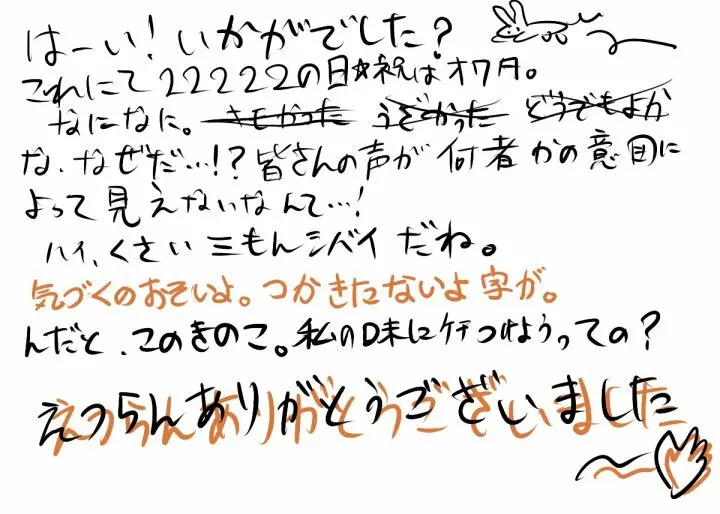 はーい!いかがでした?
これにて22222の日☆祝はオワタ。
なになに。きもかった うざかった どうでもよか
な、なぜだ…!?皆さんの声が何者かの意図に
よって見えないなんて…!
ハイ、くさい三もんシバイだね。
気づくのおそいよ。つかきたないよ字が。
んだと、このきのこ。私の口味にケチつけようっての?
えつらんありがとうございました